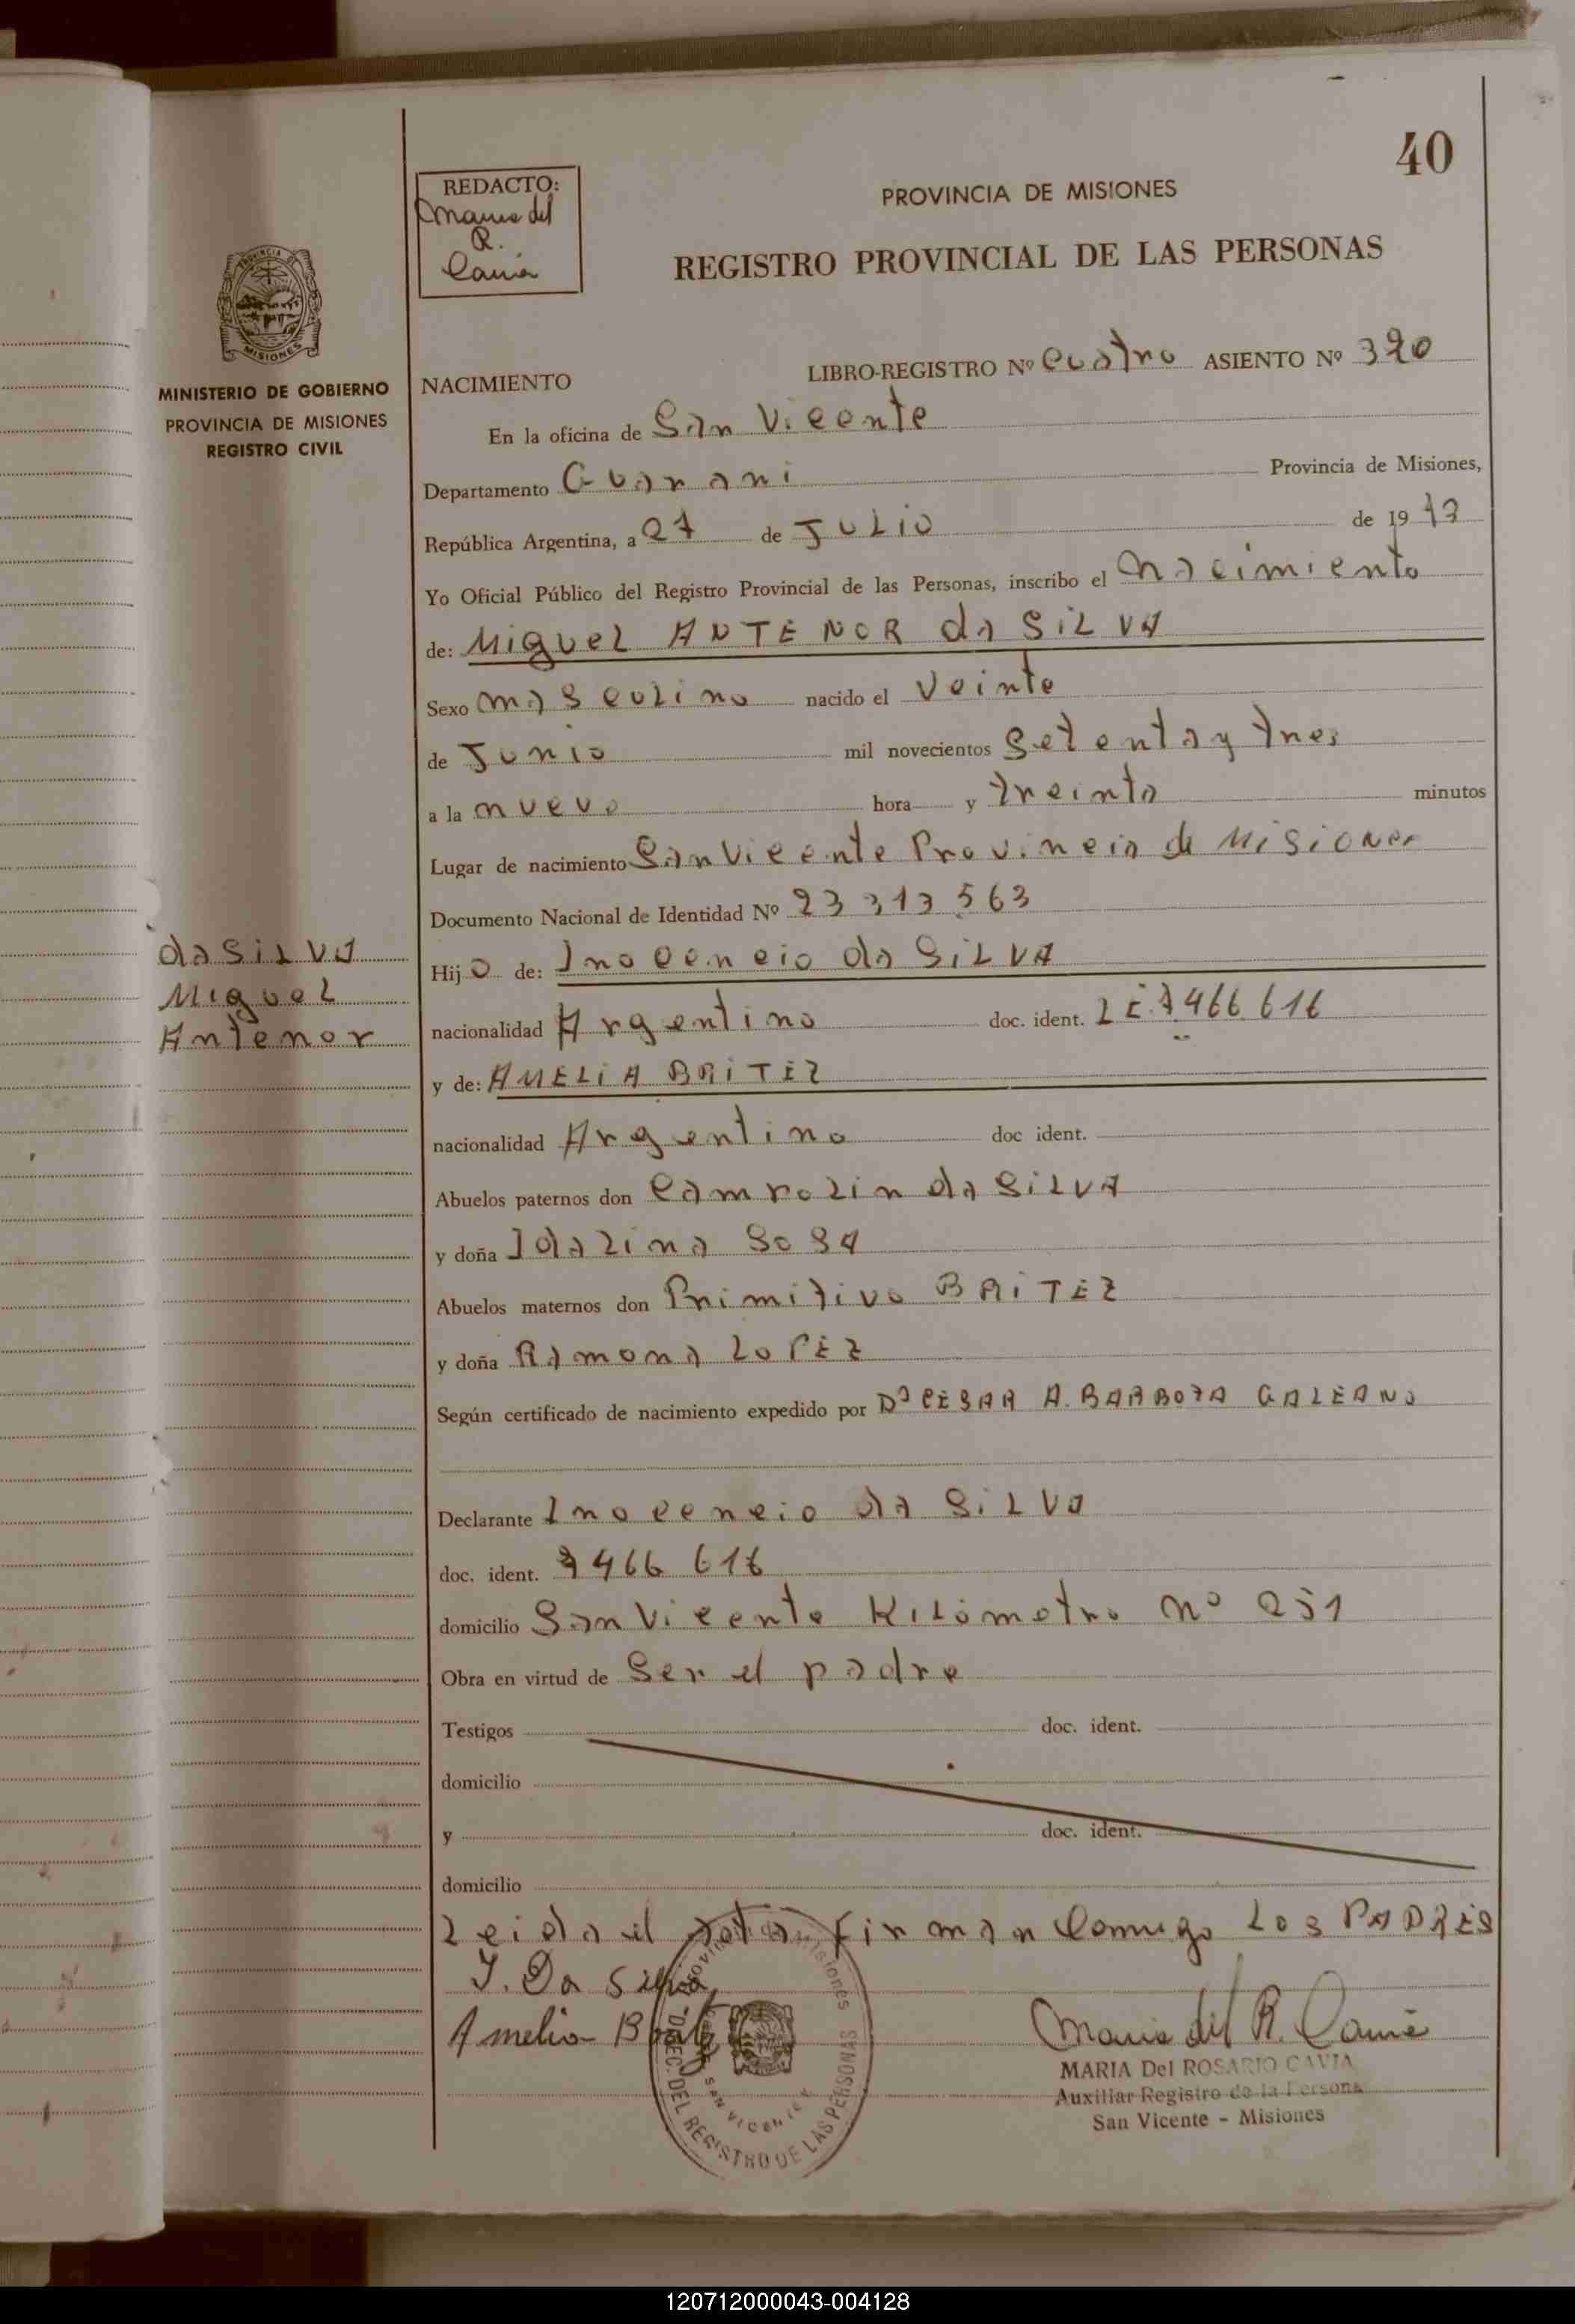 40
REDACTO:
Maria del
R.
Cavia
PROVINCIA DE MISIONES
REGISTRO PROVINCIAL DE LAS PERSONAS
PROVINCIA DE
MISIONES
MINISTERIO DE GOBIERNO
PROVINCIA DE MISIONES
REGISTRO CIVIL
NACIMIENTO LIBRO-REGISTRO Nº Cuatro ASIENTO Nº 390
En la oficina de San Vicente
Departamento Guarani Provincia de Misiones,
República Argentina, a 27 de JULIO de 1973
Yo Oficial Público del Registro Provincial de las Personas, inscribo el nacimiento
de: Miguel ANTENOR da SILVA
Sexo masculino nacido el Veinte
de Junio mil novecientos Setenta y tres
a la nueve hora y treinta minutos
Lugar de nacimiento San Vicente Provincia de Misiones
Documento Nacional de Identidad Nº 23 313 563
Hijo de: Inocencio da SILVA
nacionalidad Argentino doc. ident. L E. 7466 616
y de: AMELIA BRITEZ
nacionalidad Argentina doc ident.
Abuelos paternos don Camrolin da SILVA
y doña Idalina SOSA
Abuelos maternos don Primitivo BRITEZ
y doña Ramona LOPEZ
Según certificado de nacimiento expedido por Dº CESAR A. BARBOZA GALEANO
da SILVA
Miguel
Antenor
Declarante Inocencio da SILVA
doc. ident. 7466 616
domicilio San Vicente Kilómetro nº 251
Obra en virtud de Ser el padre
Testigos doc. ident.
domicilio
y doc. ident.
domicilio
Leida el acta firman Conmigo LOS PADRES
I. Da Silva
Amelia Britez
Maria del R. Cavia
MARIA Del ROSARIO CAVIA
Auxiliar Registro de la Persona
San Vicente - Misiones
DIREC. DEL REGISTRO DE LAS PERSONAS
SAN VICENTE
120712000043-004128